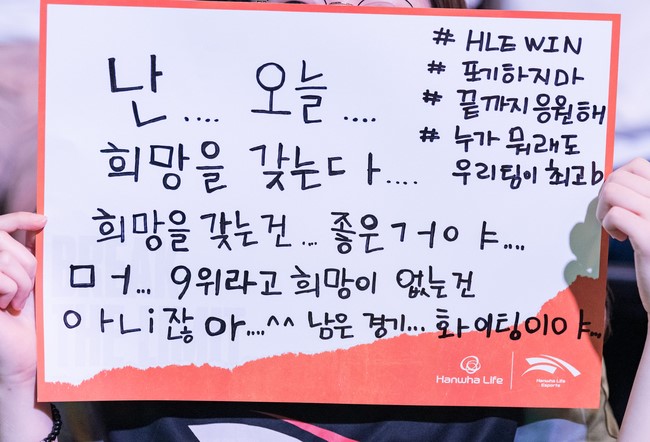 난.... 오늘....
희망을 갖는다....
희망을 갖는건... 좋은ㄱㅓㅇㅑ....
ㅁㅓ... 9위라고 희망이 없는건
아니잖아....^^ 남은 경기... 화이팅이야...
# HLE WIN
# 포기하지마
# 끝까지 응원해
# 누가 뭐래도
우리팀이 최고b
Hanwha Life
Hanwha Life
Esports